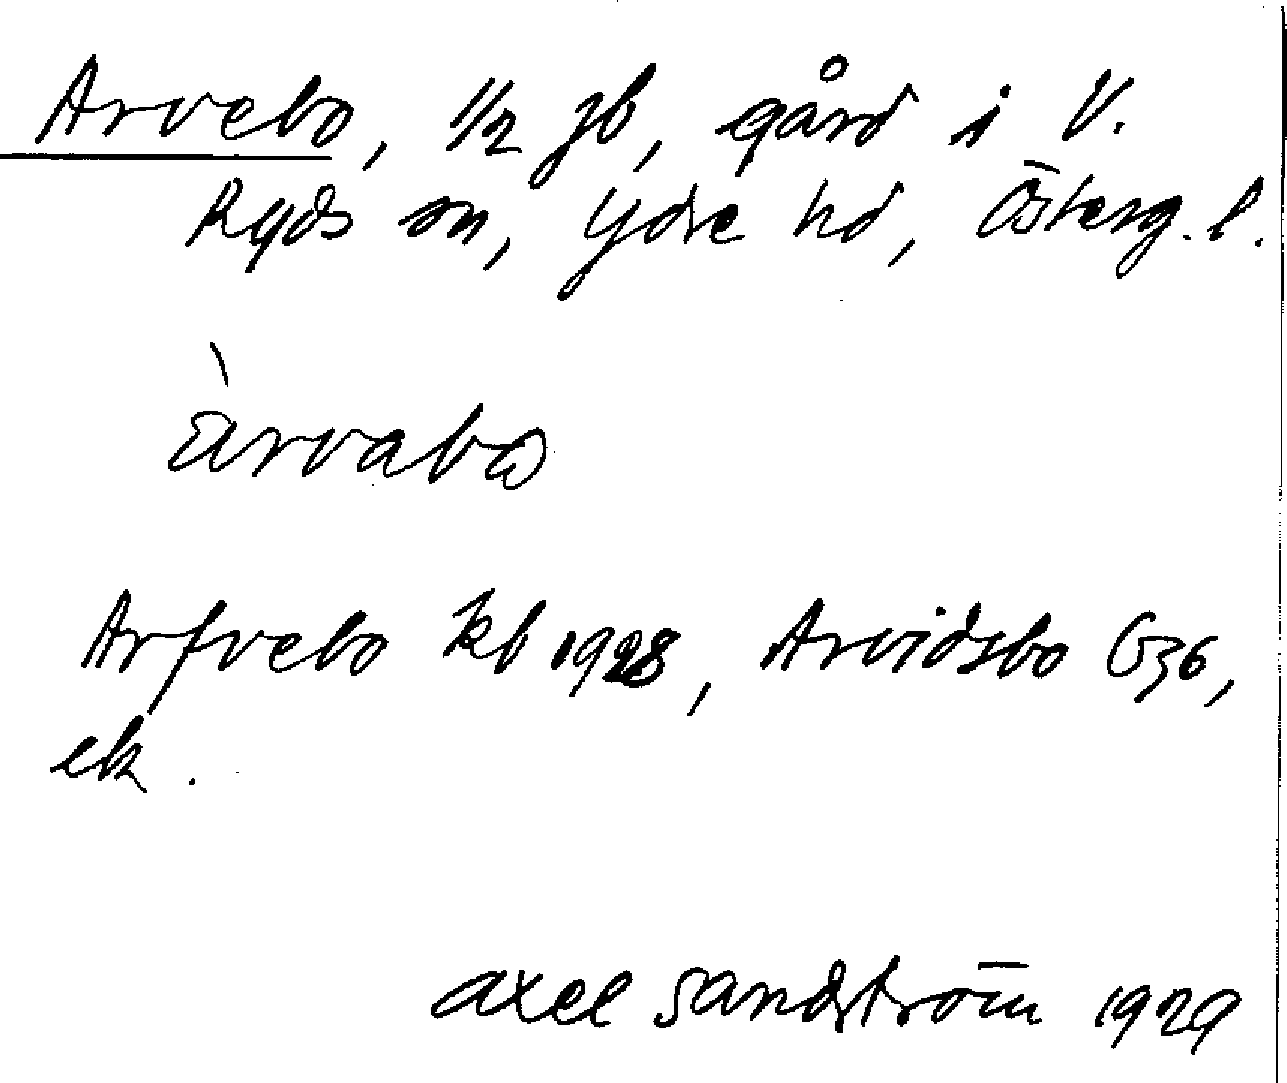 Arvebo, 1/2 jb, gård i V.
Ryds sn, Ydre hd, Österg. l.
àrvabω
Arfvebo kb 1928, Arvidsbo G36,
ek.
Axel Sandström 1929